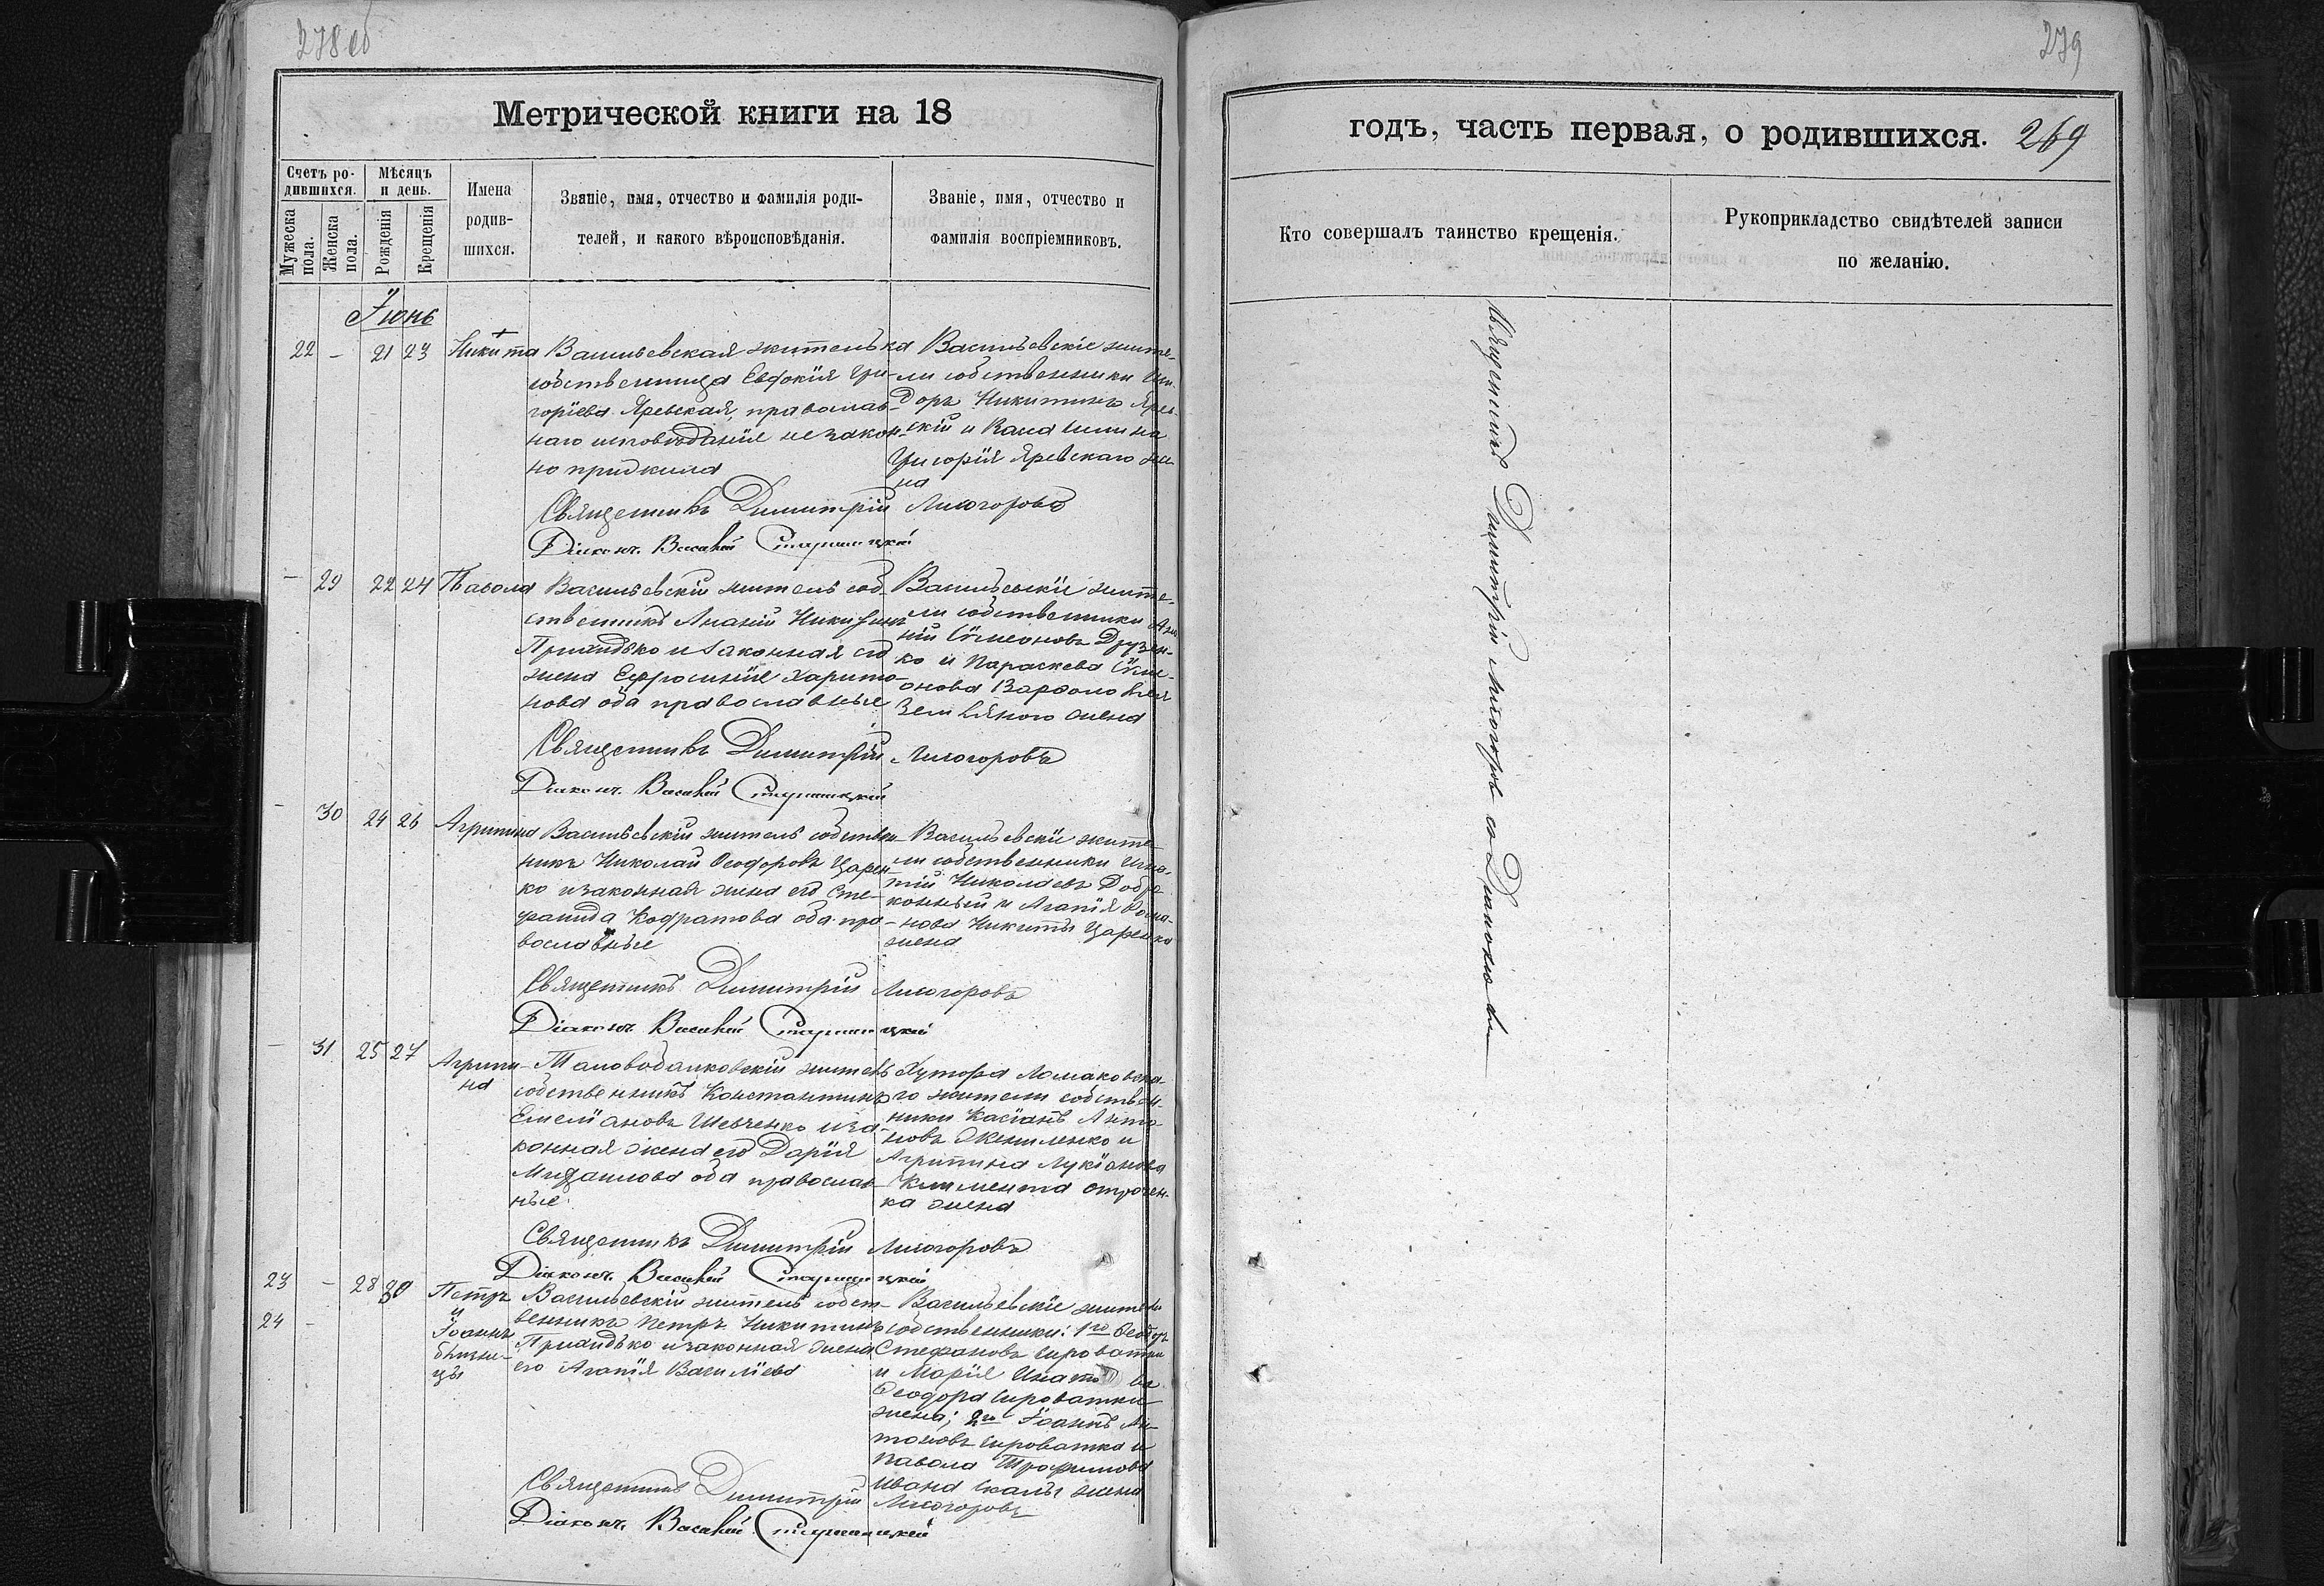 278 об
Метрической книги на 18
Счетъ ро-
дившихся.
Мѣсяцъ
и день.
Мужеска
пола.
Женска
пола.
Рожденія
Крещенія
Имена
родив-
шихся.
Званіе, имя, отчество и фамилія роди-
телей, и какого вѣроисповѣданія.
Званіе, имя, отчество и
фамилія воспріемниковъ.
Іюнь
22 – 21 23 Никита
Васильевская жителька
собственница Евдокія Гри-
горіева Яревская, православ-
наго исповѣданія незакон-
но прижила
Васильевскіе жите-
ли собственники Иси-
доръ Никитинъ Ярев-
скій и
Григорія Яревскаго же-
на
Священникъ Димитрій Лисогоровъ
Діаконъ Василій
– 29 22 24 Павола
Васильевскій житель соб-
ственникъ Ананій Никитинъ
Приходько и законная его
жена Ефросинія Харито-
нова оба православные
Васильевскіе жите-
ли собственники
Симеоновъ Друзен-
ко и Параскева Симе-
онова Варфоломѣя
Земляного жена
Священникъ Димитрій Лисогоровъ
Діаконъ Василій
– 30 24 26 Агрипина
Васильевскій житель собствен-
никъ Николай Ѳеодоровъ Царен-
ко и законная жена его Сте-
фанида Кодратова оба пра-
вославные
Васильевскіе жите-
ли собственники Игна-
тій Николаевъ Добро
конный и Агапія Рома-
нова Никиты Царенко
жена
Священникъ Димитрій Лисогоровъ
Діаконъ Василій
– 31 25 27 Агрипи-
на
житель
собственникъ Константинъ
Емеліановъ Шевченко и за-
конная жена его Дарія
Михаилова оба православ-
ные
Хутора Ломаковска-
го жители собствен-
ники Касіанъ Анто-
новъ и
Агрипина Лукіанова
Климента Отрочен-
ка жена
Священникъ Димитрій Лисогоровъ
Діаконъ Василій
23 – 28 30 Петръ
24 – и
Іоаннъ
близне-
цы
Васильевскій житель собст-
венникъ Петръ Никитинъ
Приходько и законная жена
его Агапія Василіева
Васильевскіе жители
собственники: 1го Ѳеодоръ
Стефановъ Сироватка
и Марія
Ѳеодора Сироватки
жена; 2го Іоаннъ Ан-
тоновъ Сироватка и
Павола Трофимова
Ивана Скалы жена
Священникъ Димитрій Лисогоровъ
Діаконъ Василій
279
годъ, часть первая, о родившихся. 269
Кто совершалъ таинство крещенія.
Рукоприкладство свидѣтелей записи
по желанію.
Священникъ Димитрій Лисогоровъ съ Діакономъ